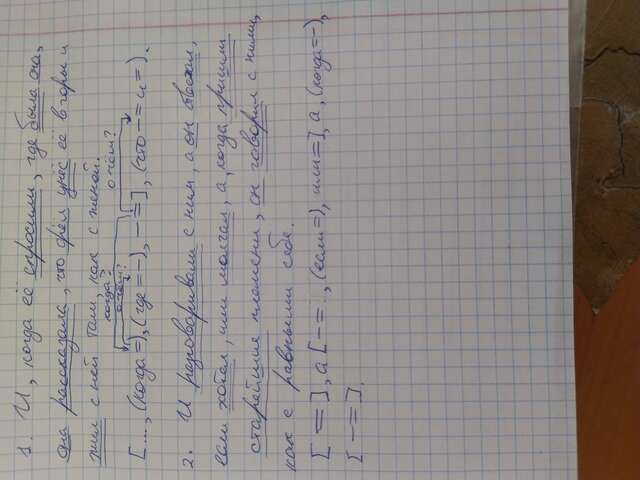 1. И, когда её спросили, где была она,
она рассказала, что орёл унёс её в горы и
жил с ней там, как с женой.
когда? о чём? о чём?
[..., (когда=), (где = -), - =], (что - = и =).
2. И разговаривали с ним, а он отвечал,
если хотел, или молчал, а, когда пришли
старейшие племени, он говорил с ними,
как с равными себе.
[ = ], а [ - = .., (если=), или = ], а, (когда = -),
[ - = ].